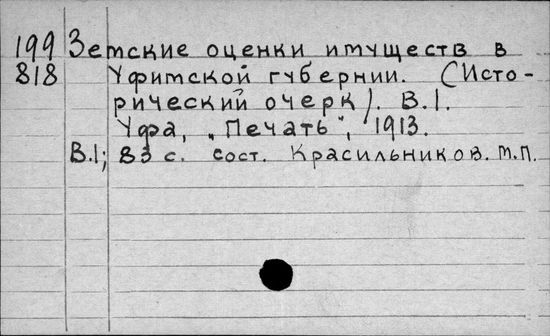 199 Земские оценки имуществ в
818 Уфимской губернии. (Исто-
рический очерк). В.1.
Уфа, „Печать", 1913.
В.1; 83 с. сост. Красильников. М.П.